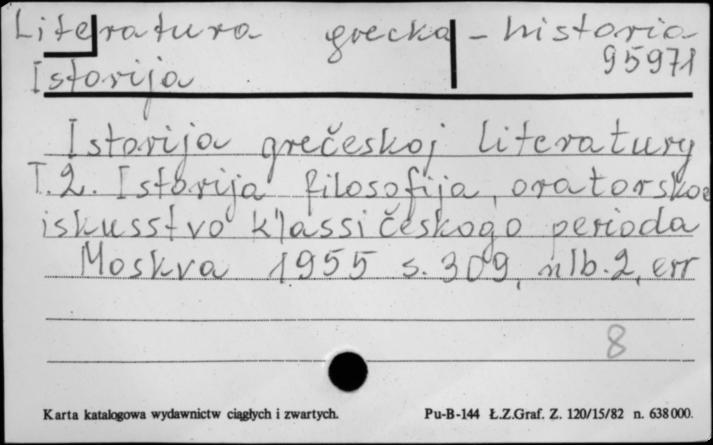 Literatura grecka - historia
95971
Istorija
Istorija grečeskoj literatury
T.2. Istorija filosofija, oratorskoe
iskusstvo klassičeskogo perioda
Moskva 1955 s. 309, nlb. 2, err
8
Karta katalogowa wydawnictw ciągłych i zwartych. Pu-B-144 Ł.Z.Graf. Z. 120/15/82 n. 638000.